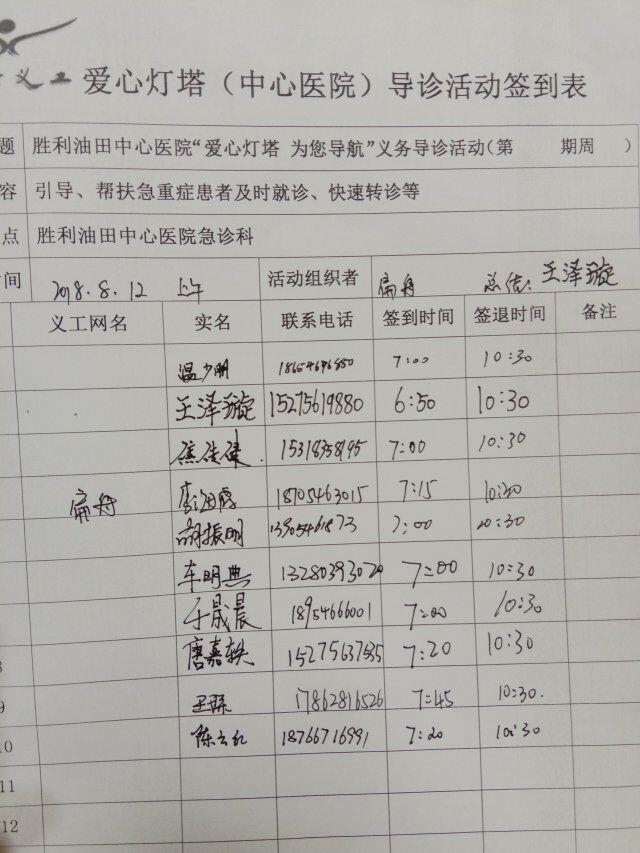 义工 爱心灯塔（中心医院）导诊活动签到表
题 胜利油田中心医院“爱心灯塔 为您导航”义务导诊活动（第 期周 ）
容 引导、帮扶急重症患者及时就诊、快速转诊等
点 胜利油田中心医院急诊科
时间 2018.8.12 上午 活动组织者 扁舟 总结:王泽璇
义工网名 实名 联系电话 签到时间 签退时间 备注
温少明 7:00 10:30
王泽璇 15275619880 6:50 10:30
15318358195 7:00 10:30
扁舟 18705463015 7:15 10:30
胡振明 13905461873 7:00 10:30
车明典 13280393020 7:00 10:30
于晟晨 18954666001 7:00 10:30
唐嘉轶 15275637535 7:20 10:30
9 王磊 17862816526 7:45 10:30.
10 陈云红 18766716991 7:20 10:30
11
12